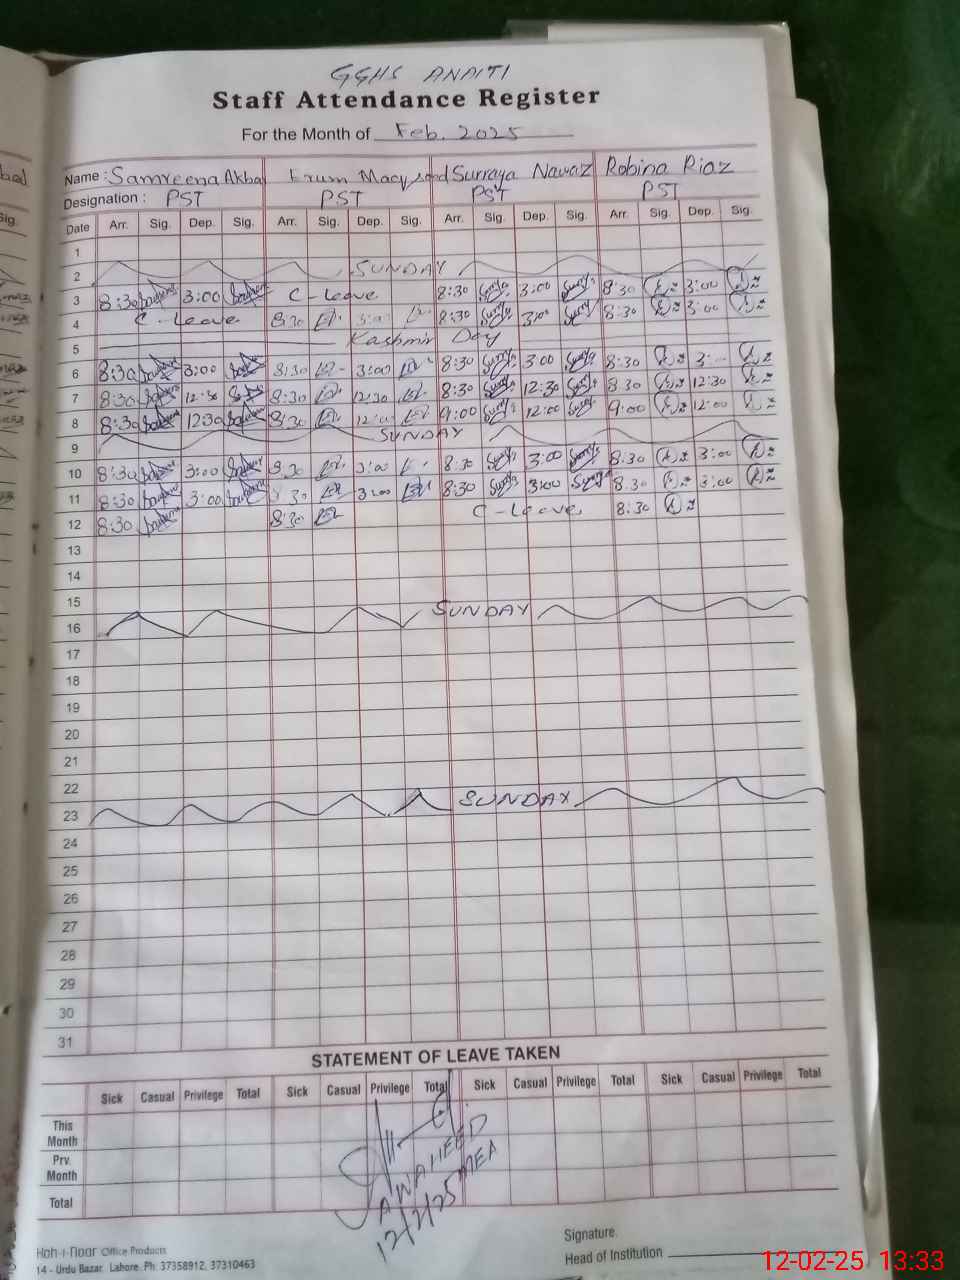 GGHS ANAITI
Staff Attendance Register
For the Month of Feb. 2025
Name : Samreena Akbar Erum Surraya Nawaz Robina Riaz
Designation : PST PST PST PST
Date Arr. Sig. Dep. Sig. Arr. Sig. Dep. Sig. Arr. Sig. Dep. Sig. Arr. Sig. Dep. Sig.
1
2 SUNDAY
3 8:30 3:00 C-Leave 8:30 3:00 8:30 3:00
4 C-Leave 8:30 3:00 8:30 3:00 8:30 3:00
5 Kashmir Day
6 8:30 3:00 8:30 3:00 8:30 3:00 8:30 3:
7 8:30 12:30 8:30 12:30 8:30 12:30 8:30 12:30
8 8:30 1230 8:30 12:00 9:00 12:00 9:00 12:00
9 SUNDAY
10 8:30 3:00 8:30 3:00 8:30 3:00 8:30 3:00
11 8:30 3:00 8:30 3:00 8:30 3:00 8:30 3:00
12 8:30 8:30 C-Leave 8:30
13
14
15
16 SUNDAY
17
18
19
20
21
22
23 SUNDAY
24
25
26
27
28
29
30
31
STATEMENT OF LEAVE TAKEN
Sick Casual Privilege Total Sick Casual Privilege Total Sick Casual Privilege Total Sick Casual Privilege Total
This Month
Prv. Month
Total
A WAHEED
MEA
12/2/25
Koh-i-Noor Office Products
14 - Urdu Bazar Lahore. Ph: 37358912, 37310463
Signature.
Head of Institution
12-02-25 13:33